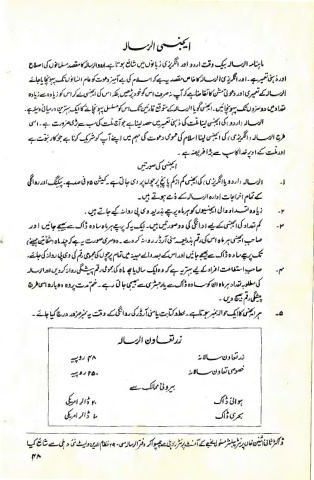 ایجنسی الرسالہ
ماہنامہ الرسالہ بیک وقت اردو اور انگریزی زبانوں میں شائع ہوتا ہے۔ اردو الرسالہ کا مقصد مسلمانوں کی اصلاح
اور ذہنی تعمیر ہے۔ اور انگریزی الرسالہ کا خاص مقصد یہ ہے کہ اسلام کی بے آمیز دعوت کو عام انسانوں تک پہونچایا جائے
الرسالہ کے تعمیری اور دعوتی مشن کا تقاضا ہے کہ آپ نہ صرف اس کو خود پڑھیں بلکہ اس کی ایجنسی لے کر اس کو زیادہ سے زیادہ
تعداد میں دوسروں تک پہونچائیں۔ ایجنسی گویا الرسالہ کے متوقع قارئین تک اس کو مسلسل پہونچانے کا ایک بہترین درمیانی وسیلہ ہے۔
الرسالہ (اردو) کی ایجنسی لینا ملت کی ذہنی تعمیر میں حصہ لینا ہے جو آج ملت کی سب سے بڑی ضرورت ہے۔ اسی
طرح الرسالہ (انگریزی) کی ایجنسی لینا اسلام کی عمومی دعوت کی مہم میں اپنے آپ کو شریک کرنا ہے جو کار نبوت ہے
اور ملت کے اوپر خدا کا سب سے بڑا فریضہ ہے۔
ایجنسی کی صورتیں
۱۔ الرسالہ (اردو یا انگریزی) کی ایجنسی کم از کم پانچ پرچوں پر دی جاتی ہے۔ کمیشن ۲۵ فی صد ہے۔ پیکنگ اور روانگی
کے تمام اخراجات ادارہ الرسالہ کے ذمے ہوتے ہیں۔
۲۔ زیادہ تعداد والی ایجنسیوں کو ہر ماہ پرچے بذریعہ وی پی روانہ کیے جاتے ہیں۔
۳۔ کم تعداد کی ایجنسی کے لیے ادائیگی کی دو صورتیں ہیں۔ ایک یہ کہ پرچے ہر ماہ سادہ ڈاک سے بھیجے جائیں اور
صاحب ایجنسی ہر ماہ اس کی رقم بذریعہ منی آرڈر روانہ کر دے۔ دوسری صورت یہ ہے کہ چند ماہ (مثلاً تین مہینے)
تک پرچے سادہ ڈاک سے بھیجے جائیں اور اس کے بعد والے مہینہ میں تمام پرچوں کی مجموعی رقم کی وی پی روانہ کی جائے۔
۴۔ صاحب استطاعت افراد کے لیے بہتر یہ ہے کہ وہ ایک سال یا چھ ماہ کی مجموعی رقم پیشگی روانہ کر دیں اور الرسالہ
کی مطلوبہ تعداد ہر ماہ ان کو سادہ ڈاک سے یا رجسٹری سے بھیجی جاتی رہے۔ ختم مدت پر وہ دوبارہ اسی طرح
پیشگی رقم بھیج دیں۔
۵۔ ہر ایجنسی کا ایک حوالہ نمبر ہوتا ہے۔ خط و کتابت یا منی آرڈر کی روانگی کے وقت یہ نمبر ضرور درج کیا جائے۔
زر تعاون الرسالہ
زر تعاون سالانہ ۴۸ روپیہ
خصوصی تعاون سالانہ ۲۵۰ روپیہ
بیرونی ممالک سے
ہوائی ڈاک ۲۰ ڈالر امریکی
بحری ڈاک ۱۰ ڈالر امریکی
ڈاکٹر ثانی اثنین خاں پرنٹر پبلشر مسئول نے
۴۸